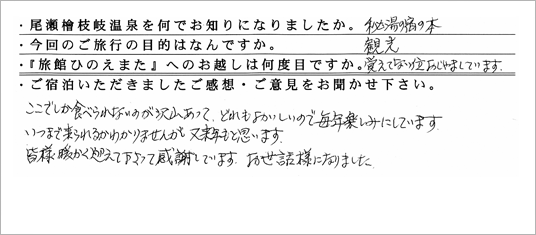 ・尾瀬檜枝岐温泉を何でお知りになりましたか。 秘湯の宿の本
・今回のご旅行の目的はなんですか。 観光
・『旅館ひのえまた』へのお越しは何度目ですか。覚えてない位おじゃましています。
・ご宿泊いただきましたご感想・ご意見をお聞かせ下さい。
ここでしか食べられないものが沢山あって、どれもおいしいので毎年楽しみにしています
いつまで来られるかわかりませんが又来年もと思います。
皆様暖かく迎えて下さって感謝しています。お世話様になりました。